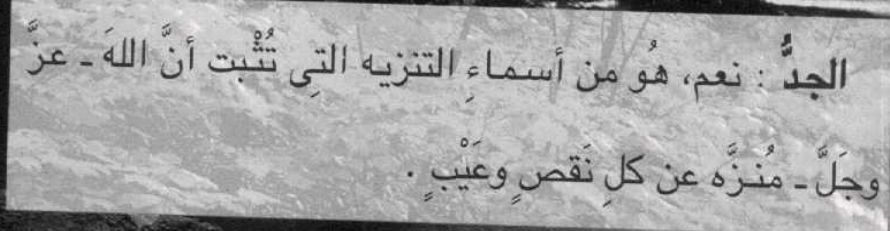 الجدُّ : نعم، هُو من أسماءِ التنزيه التِى تُثْبت أنَّ اللهَ ـ عزَّ
وجَلَّ ـ مُنـزَّه عن كلِ نَقصٍ وعَيْبٍ .